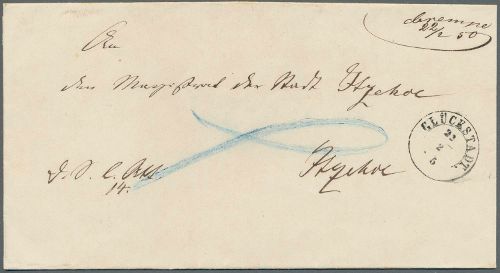 Cremne
22/2 50
An
den Magistrat der Stadt Itzehoe
GLÜCKSTADT
22
2
5
d. S. l.
14.
Itzehoe